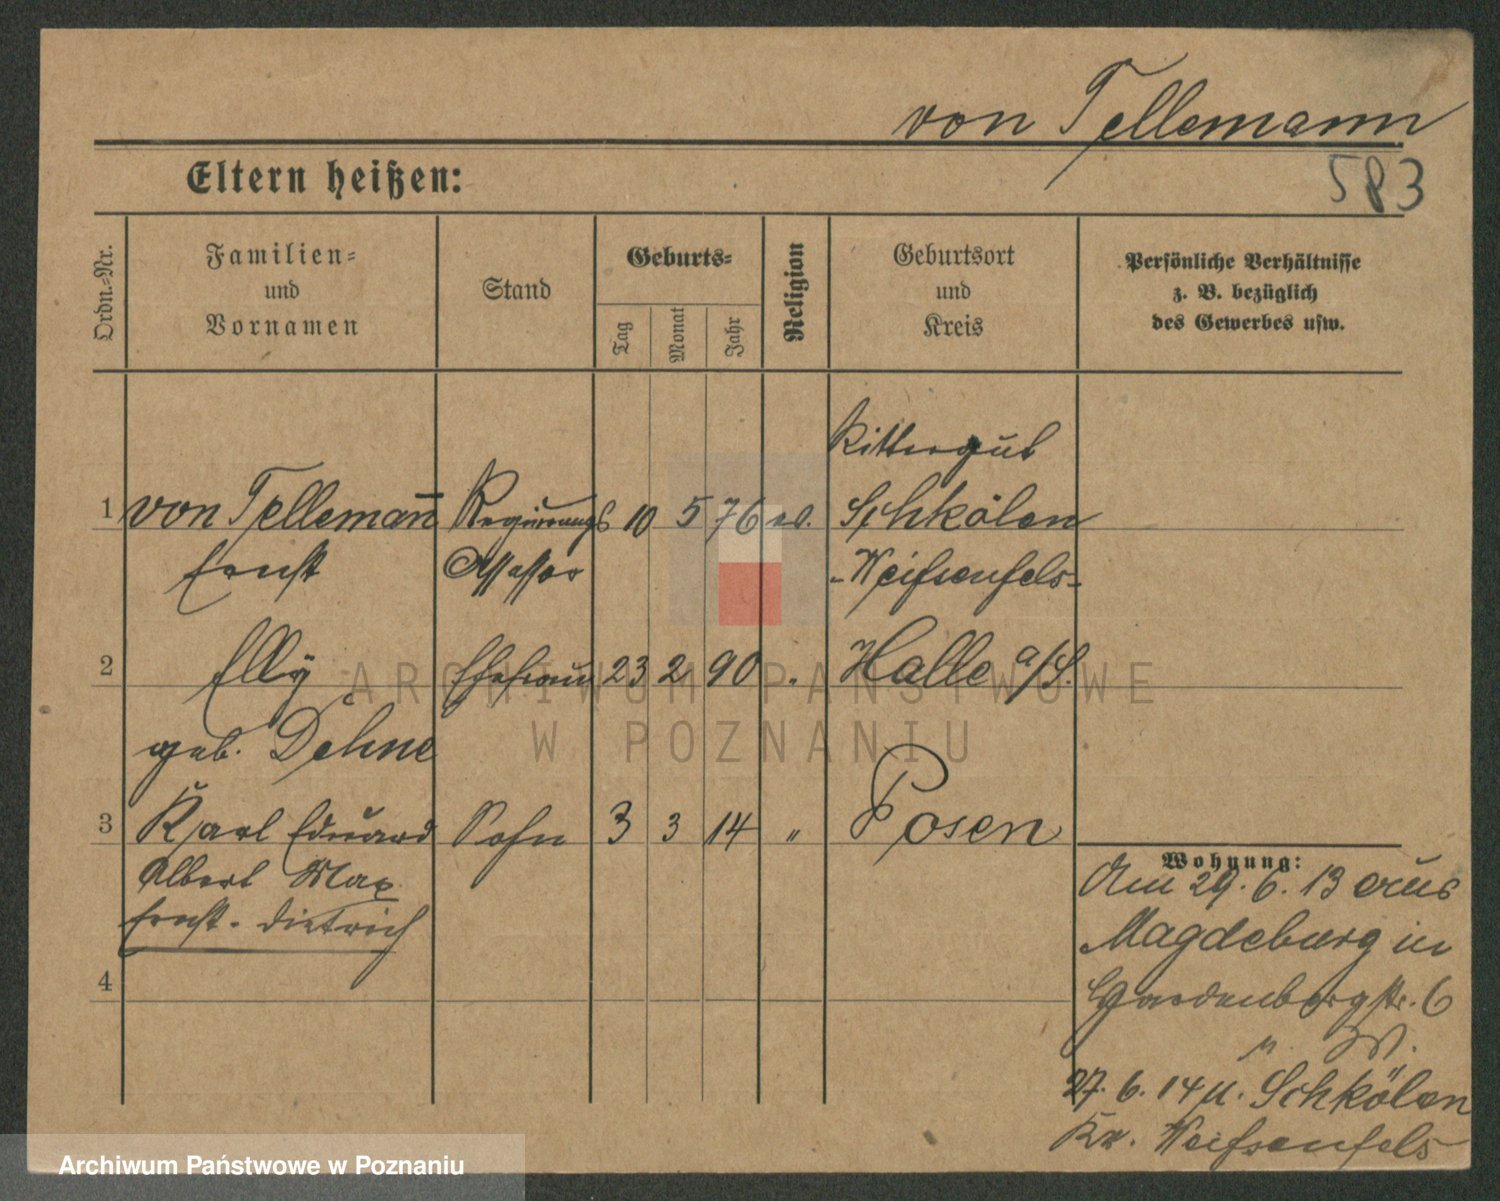 von Tellemann
583
Eltern heißen:
Ordn.-Nr.
Familien- und Vornamen
Stand
Geburts-
Tag
Monat
Jahr
Religion
Geburtsort und Kreis
Persönliche Verhältnisse
z. B. bezüglich
des Gewerbes usw.
Rittergut
1 von Telleman̄ Regierungs 10 5 76 ev. Schkölen
Ernst Assessor -Weißenfels-
2 Elly Ehefrau 23 2 90 " Halle a/S.
geb. Dehne
3 Karl Eduard Sohn 3 3 14 " Posen
Albert Max
Ernst-Dietrich
4
Wohnung:
Am 29. 6. 13 aus
Magdeburg in
Hardenbergstr. 6
n. W.
27. 6. 14 n. Schkölen
Kr. Weißenfels
ARCHIWUM PAŃSTWOWE
W POZNANIU
Archiwum Państwowe w Poznaniu